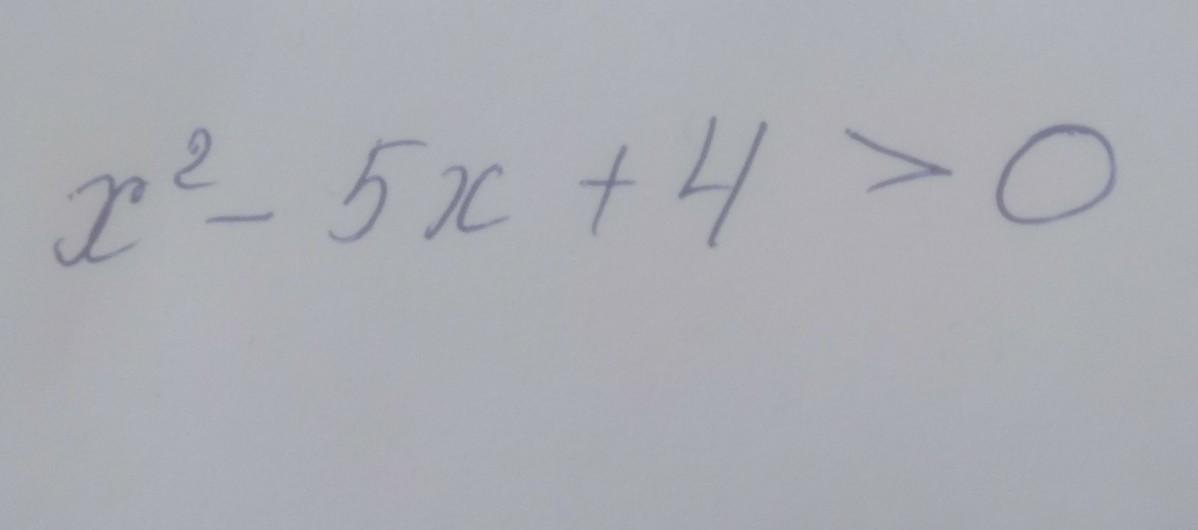 x² - 5x + 4 > 0